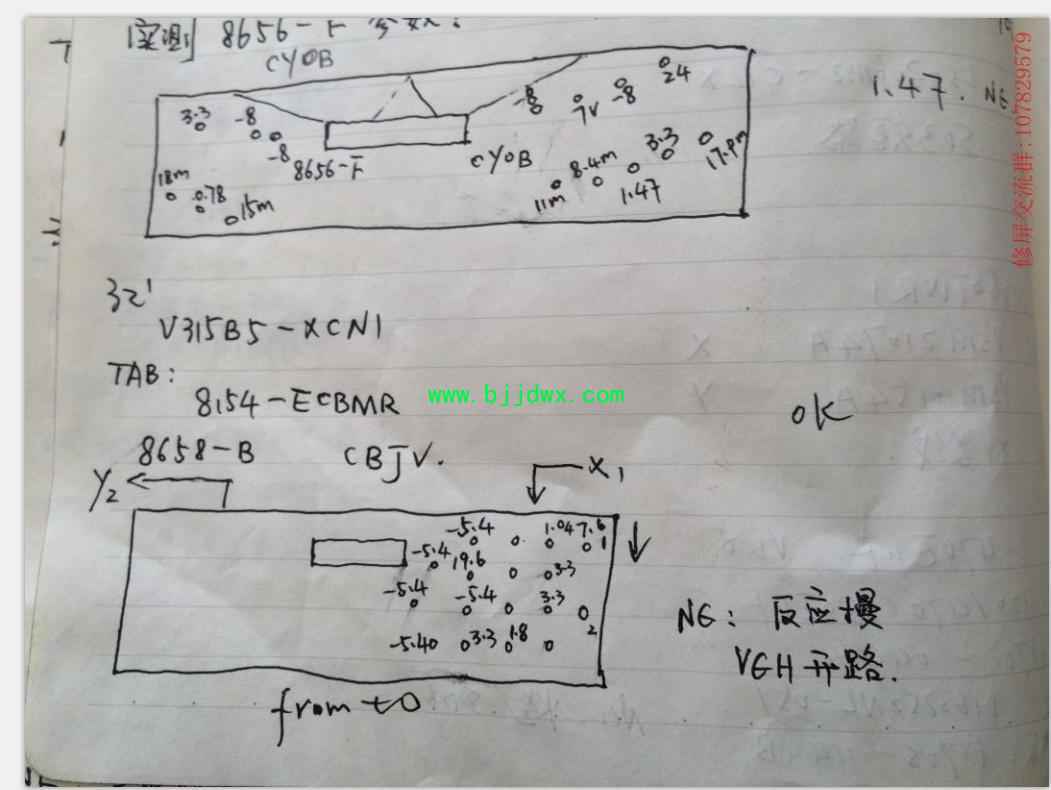 实测 8656-F 参数:
CYOB
24
-8
-8
7V
3.3
-8
1.47. NG
-8
8656-F
CYOB
3.3
8.4m
18m
0.78
15m
11m
1.47
修屏交流群:107829579
32'
V315B5-XCN1
TAB:
8154-ECBMR
www.bjjdwx.com
OK
8658-B CBJV.
Y2
X1
-5.4 1.04 7.6
-5.4 19.6 1
3.3
-5.4 -5.4 3.3
2
-5.40 3.3 1.8
NG: 反应慢
VGH 开路.
from to